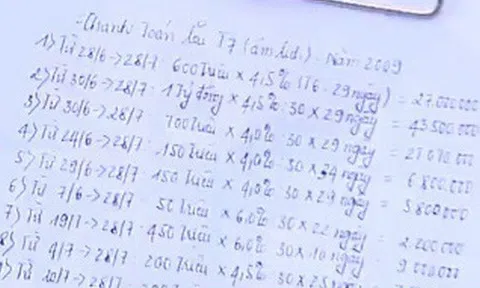 - Thanh Toán lãi T7 (âm lịch). Năm 2009
1) Từ 28/6 -> 28/7: 600 triệu × 4,5% (T6: 29 ngày) = 27.000.000
2) Từ 30/6 -> 28/7: 1 tỷ đồng × 4,5% : 30 × 29 ngày = 43.500.000
3) Từ 30/6 -> 28/7: 700 triệu × 4,0% : 30 × 29 ngày = 27.070.000
4) Từ 24/6 -> 28/7: 150 triệu × 4,0% : 30 × 34 ngày = 6.800.000
5) Từ 29/6 -> 28/7: 150 triệu × 4,0% : 30 × 29 ngày = 5.800.000
6) Từ 7/6 -> 28/7: 50 triệu × 6,0% : 30 × 22 ngày = 2.200.000
7) Từ 19/7 -> 28/7: 450 triệu × 6,0% : 30 × 10 ngày = 9.000.000
8) Từ 4/7 -> 28/7: 200 triệu × 4,5% : 30 × 25
) Từ 20/7 -> 28/7: